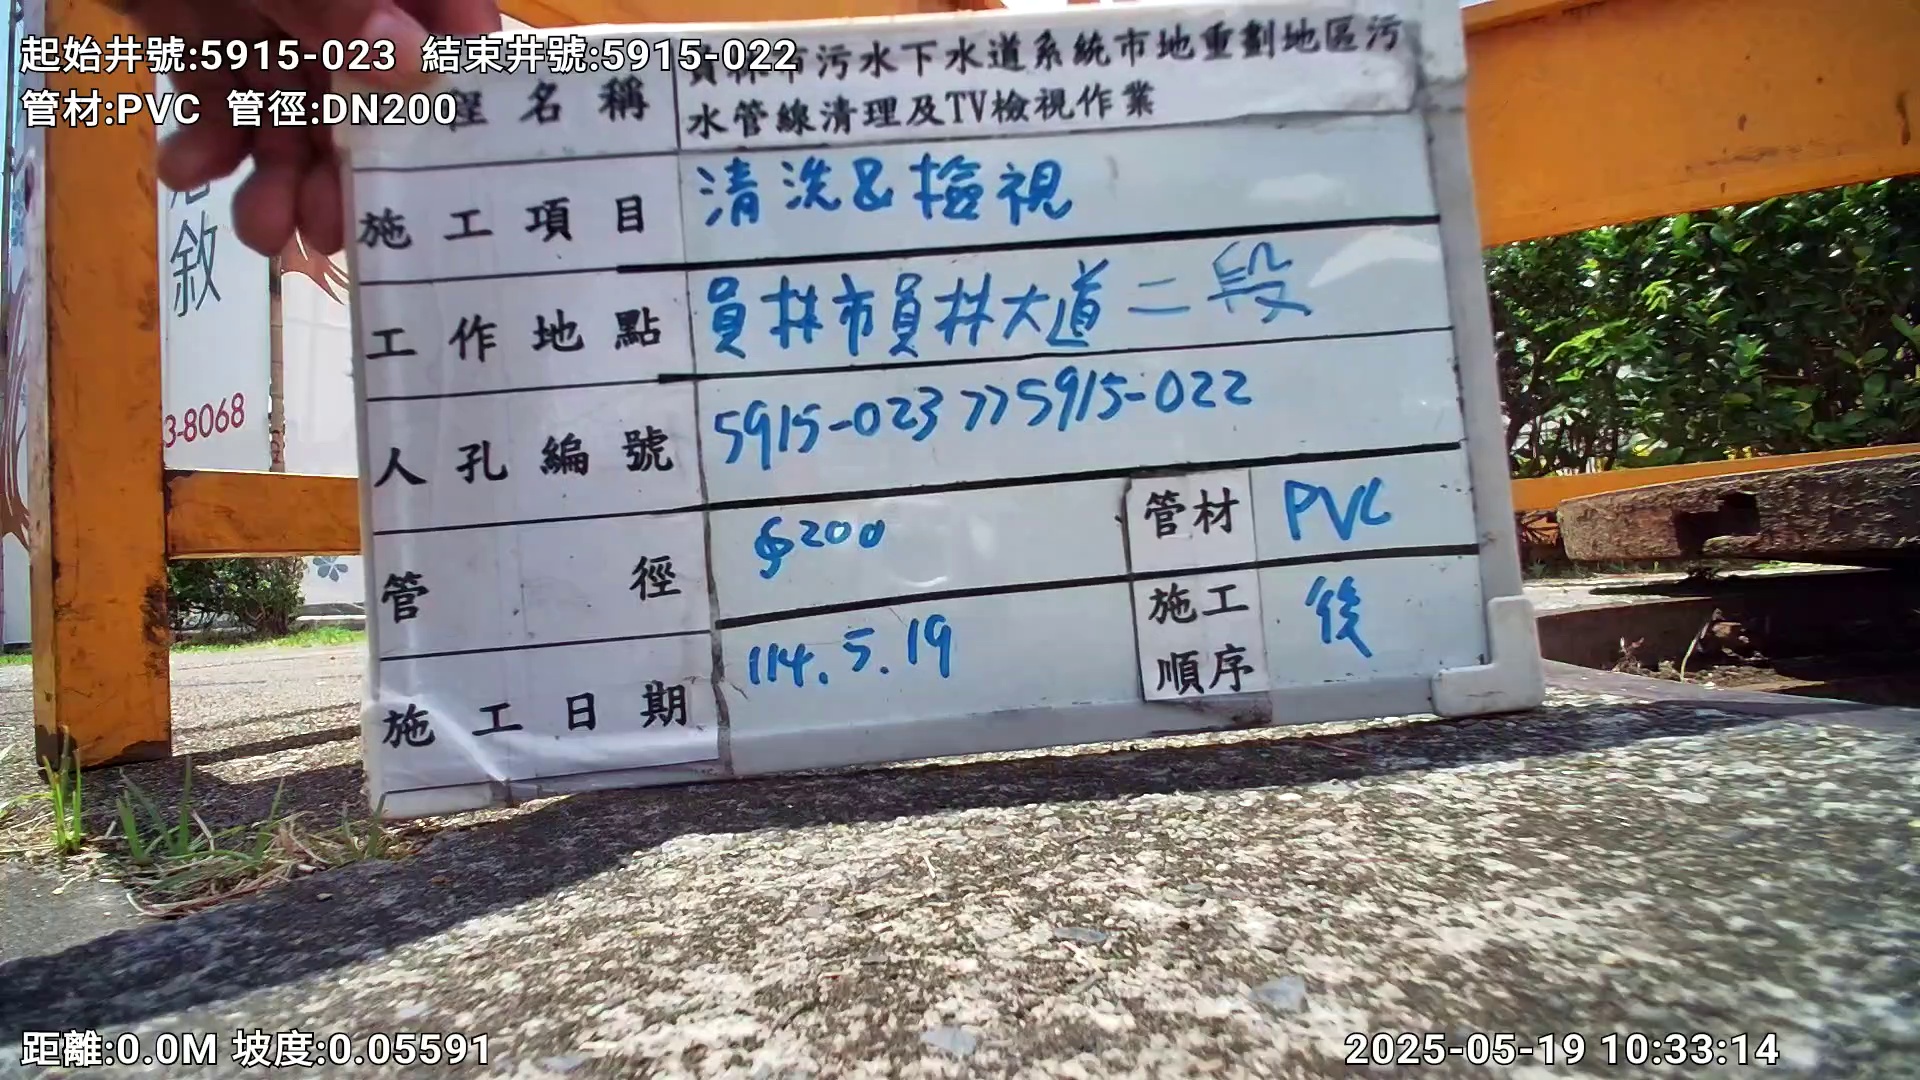 起始井號:5915-023 結束井號:5915-022
管材:PVC 管徑:DN200
程名稱
員林市污水下水道系統市地重劃地區污
水管線清理及TV檢視作業
施工項目
清洗&檢視
工作地點
員林市員林大道二段
人孔編號
5915-023>>5915-022
管徑
φ200
管材
PVC
施工日期
114.5.19
施工
順序
後
敘
3-8068
距離:0.0M 坡度:0.05591
2025-05-19 10:33:14